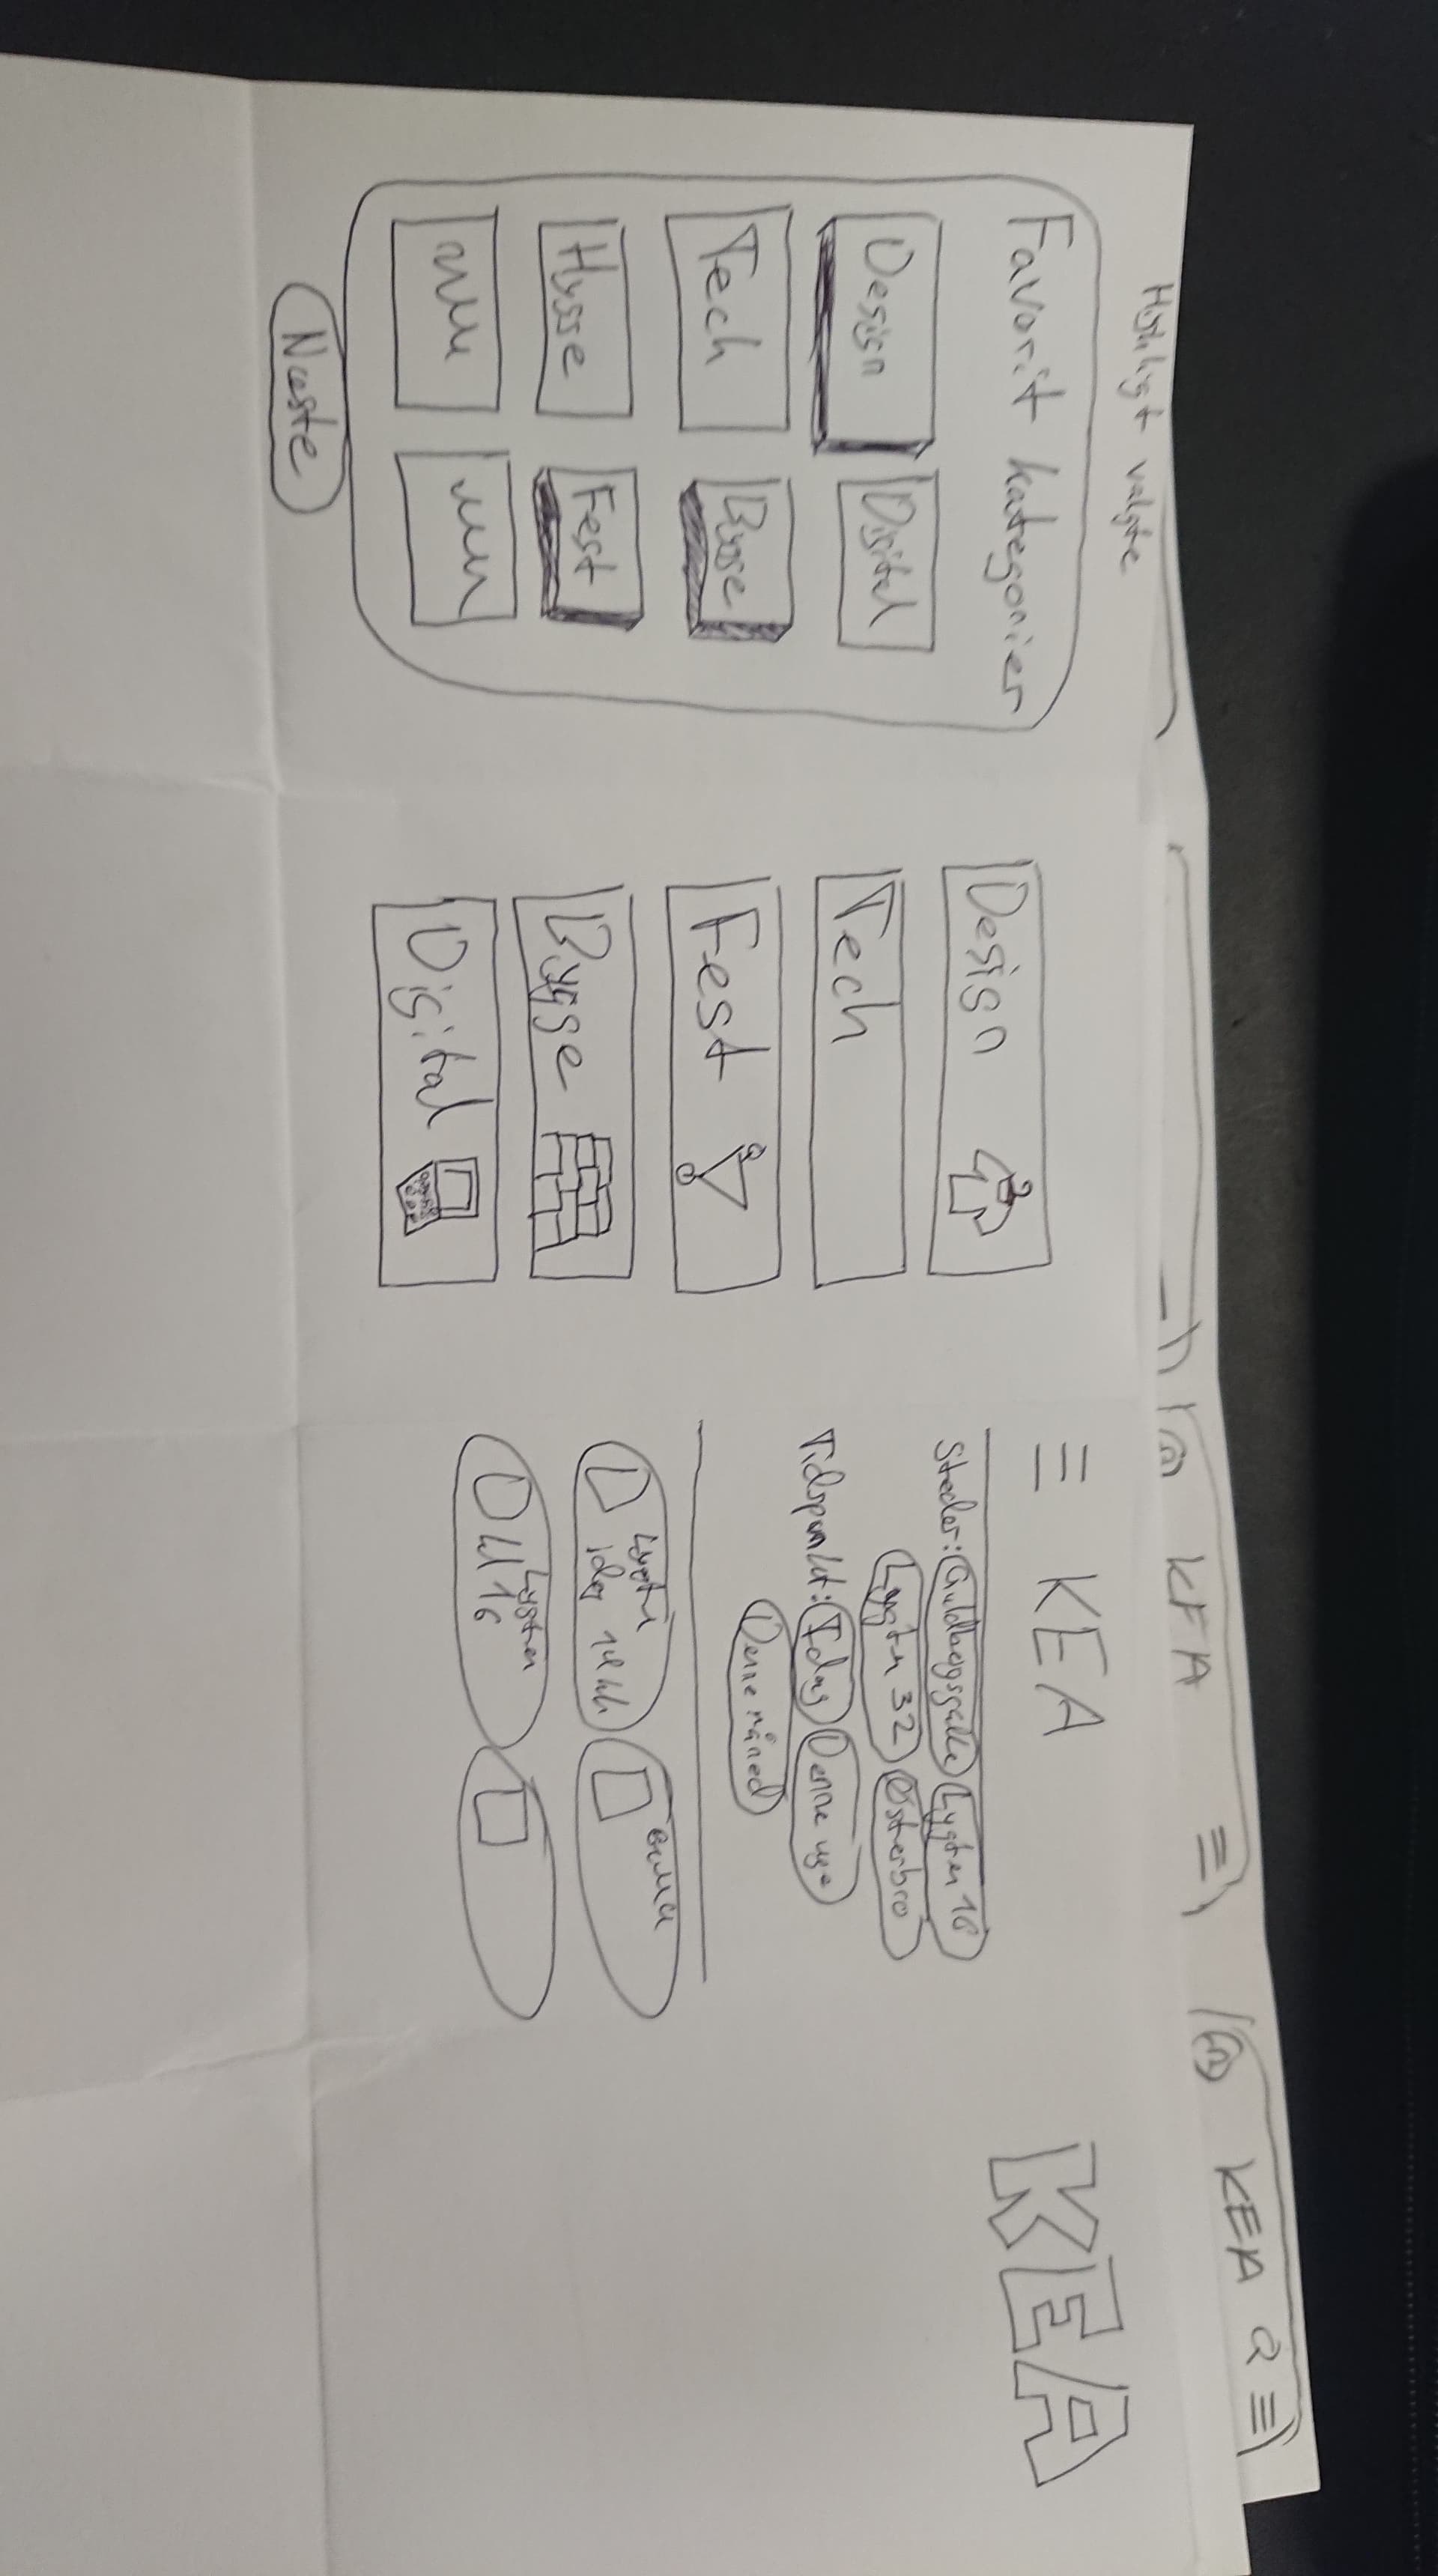 Highligt valgte
Favorit kategorier
Design Digital
Tech
Hygge Fest
Næste
Design
Tech
Fest
Bygge
Digital
KEA
Steder: Guldbergsgade Lygten 16
Lygten 32 Østerbro
Tidspunkt: Idag Denne uge
Denne måned
Lygten
idag
Lygten
16
KEA
KEA
KEA